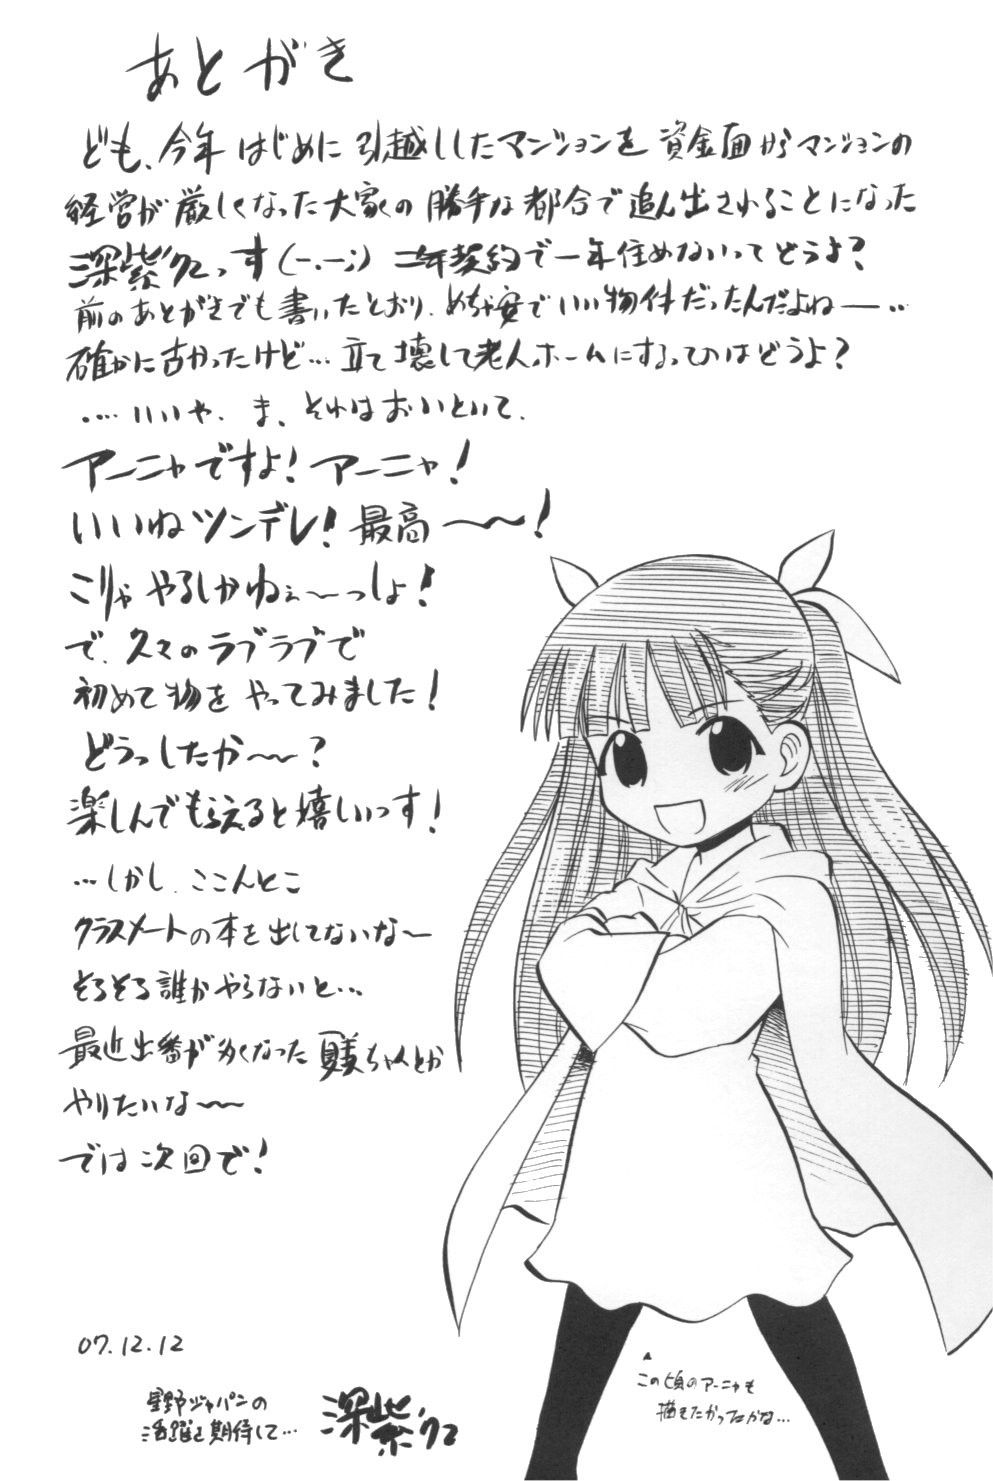 あとがき
ども、今年はじめに引越ししたマンションを資金面からマンションの
経営が厳しくなった大家の勝手な都合で追ん出されることになった
深紫クっす(-.-;) 二年契約で一年住めないってどうよ?
前のあとがきでも書いたとおり、めちゃ安でいい物件だったんだよねー…
確かに古かったけど…立て壊して老人ホームにするってのはどうよ?
……いいや、ま、それはおいといて、
アーニャですよ!アーニャ!
いいねツンデレ!最高〜〜!
こりゃやるしかねぇ〜〜っしょ!
で、久々のラブラブで
初めて物をやってみました!
どうっしたか〜〜?
楽しんでもらえると嬉しいっす!
…しかし、ここんとこ
クラスメートの本を出してないな〜
そろそろ誰かやらないと…
最近出番が多くなった夏美ちゃんとか
やりたいな〜〜
では次回で!
07.12.12
星野ジャパンの
活躍を期待して…
深紫
この頃のアーニャも
描きたかったかな…